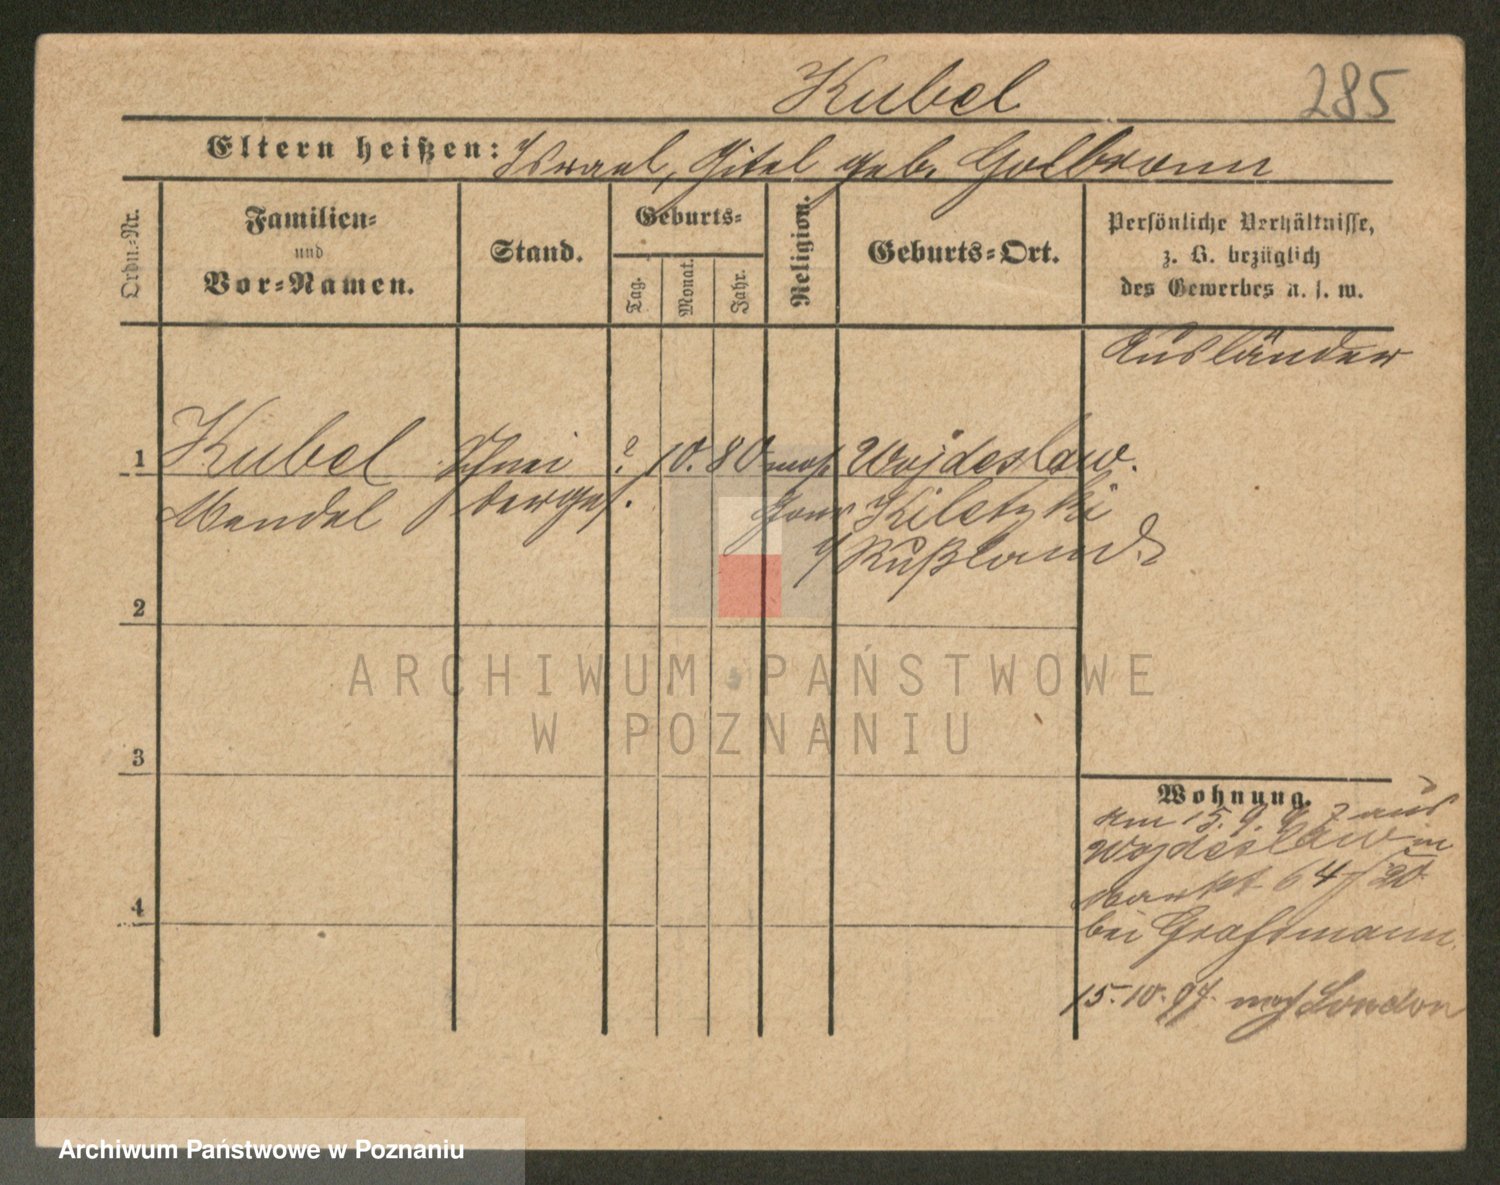 Kubel 285
Eltern heißen: Israel, Gitel geb. Golbronn
Ordn.-Nr.
Familien-
und
Vor-Namen.
Stand.
Geburts-
Tag.
Monat.
Jahr.
Religion.
Geburts-Ort.
Persönliche Verhältnisse,
z. B. bezüglich
des Gewerbes u. s. w.
Ausländer
1 Kubel Schnei ? 10. 80 mos. Wojdeslaw.
Mendel derges. Gouv. Kiletzki
Rußland
2
3
4
Wohnung.
am 15. 9. 97 aus
Wojdeslaw in
Markt 64
bei Graftmann.
15. 10. 97. nach London
ARCHIWUM PAŃSTWOWE
W POZNANIU
Archiwum Państwowe w Poznaniu